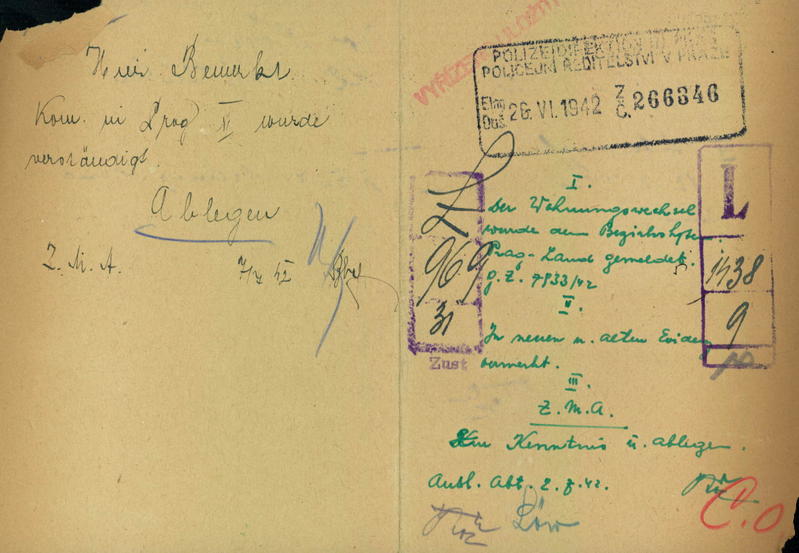 Hier Bemerkt.
Kom. in Prag II wurde
verständigt.
Ablegen
Z. M. A.
POLIZEIDIREKTION IN PRAG
POLICEJNÍ ŘEDITELSTVÍ V PRAZE
Eing. 26. VI. 1942 Z 266346
Doš. Č.
L
969
31
Zust
L
1438
9
I.
Der Wohnungswechsel
wurde dem Bezirkshptm.
Prag-Land gemeldet.
g. Z. 7933/42
II.
In neuen u. alten Evidenz
vermerkt.
III.
Z. M. A.
Zur Kenntnis u. ablegen.
Ausl. Abt. 2. 7. 42.
Löw
C.O